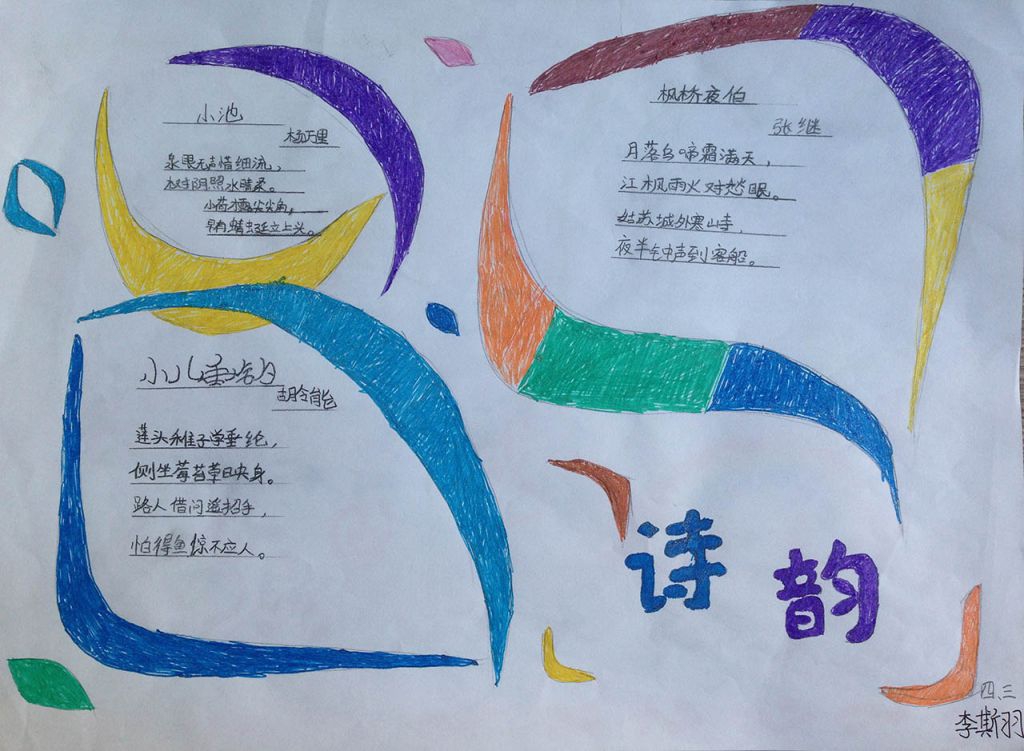 小池
杨万里
泉眼无声惜细流，
树阴照水晴柔。
小荷才露尖尖角，
早有蜻蜓立上头。
枫桥夜伯
张继
月落乌啼霜满天，
江枫雨火对愁眠。
姑苏城外寒山寺，
夜半钟声到客船。
小儿垂钓
胡令能
蓬头稚子学垂纶，
侧坐莓苔草映身。
路人借问遥招手，
怕得鱼惊不应人。
诗韵
四、三
李斯羽